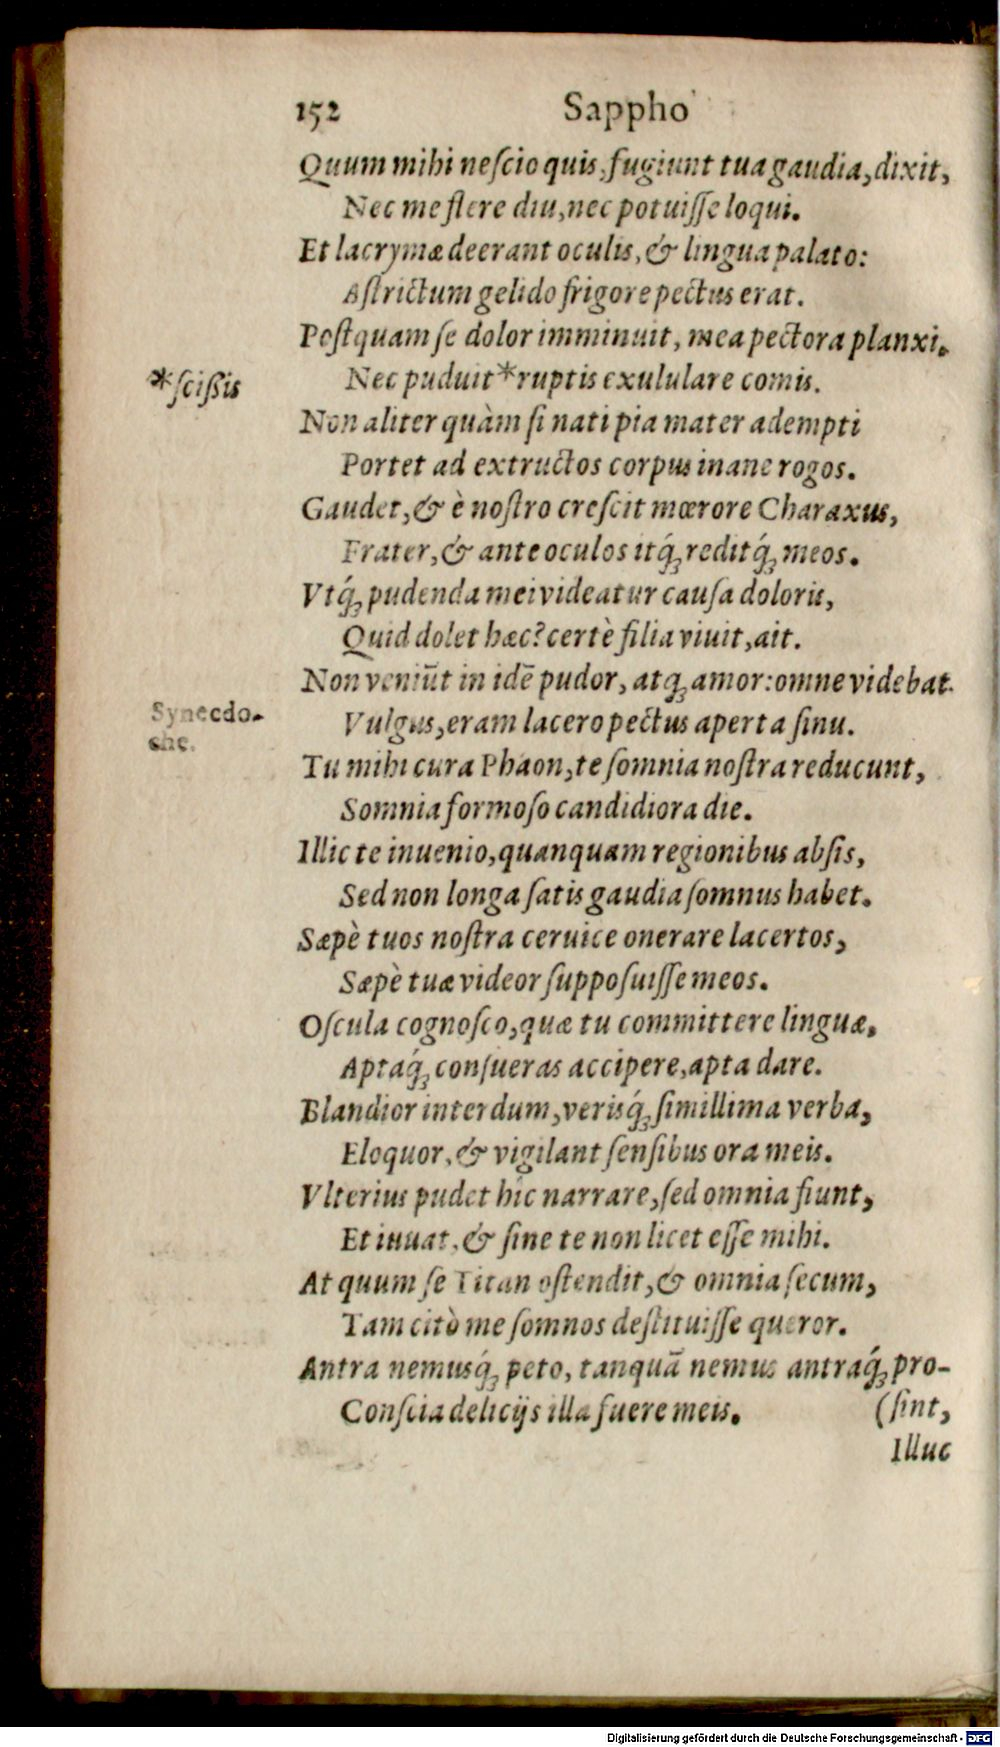 152 Sappho
Quum mihi neſcio quis, fugiunt tua gaudia, dixit,
Nec me flere diu, nec potuiſſe loqui.
Et lacrymæ deerant oculis, & lingua palato:
Aſtrictum gelido frigore pectus erat.
Poſtquam ſe dolor imminuit, mea pectora planxi.
*ſciſſis
Nec puduit *ruptis exululare comis.
Non aliter quàm ſi nati pia mater adempti
Portet ad extructos corpus inane rogos.
Gaudet, & è noſtro creſcit mœrore Charaxus,
Frater, & ante oculos itq́ꝫ reditq́ꝫ meos.
Vtq́ꝫ pudenda mei videatur cauſa doloris,
Quid dolet hæc? certè filia viuit, ait.
Non veniūt in idē pudor, atqꝫ amor: omne videbat
Synecdo-
che.
Vulgus, eram lacero pectus aperta ſinu.
Tu mihi cura Phaon, te ſomnia noſtra reducunt,
Somnia formoſo candidiora die.
Illic te inuenio, quanquam regionibus abſis,
Sed non longa ſatis gaudia ſomnus habet.
Sæpè tuos noſtra ceruice onerare lacertos,
Sæpè tuæ videor ſuppoſuiſſe meos.
Oſcula cognoſco, quæ tu committere linguæ,
Aptaq́ꝫ conſueras accipere, apta dare.
Blandior interdum, verisq́ꝫ ſimillima verba,
Eloquor, & vigilant ſenſibus ora meis.
Vlterius pudet hîc narrare, ſed omnia fiunt,
Et iuuat, & ſine te non licet eſſe mihi.
At quum ſe Titan oſtendit, & omnia ſecum,
Tam citò me ſomnos deſtituiſſe queror.
Antra nemusq́ꝫ peto, tanquā nemus antraq́ꝫ pro-
Conſcia delicijs illa fuere meis. (ſint,
Illuc
Digitalisierung gefördert durch die Deutsche Forschungsgemeinschaft - DFG